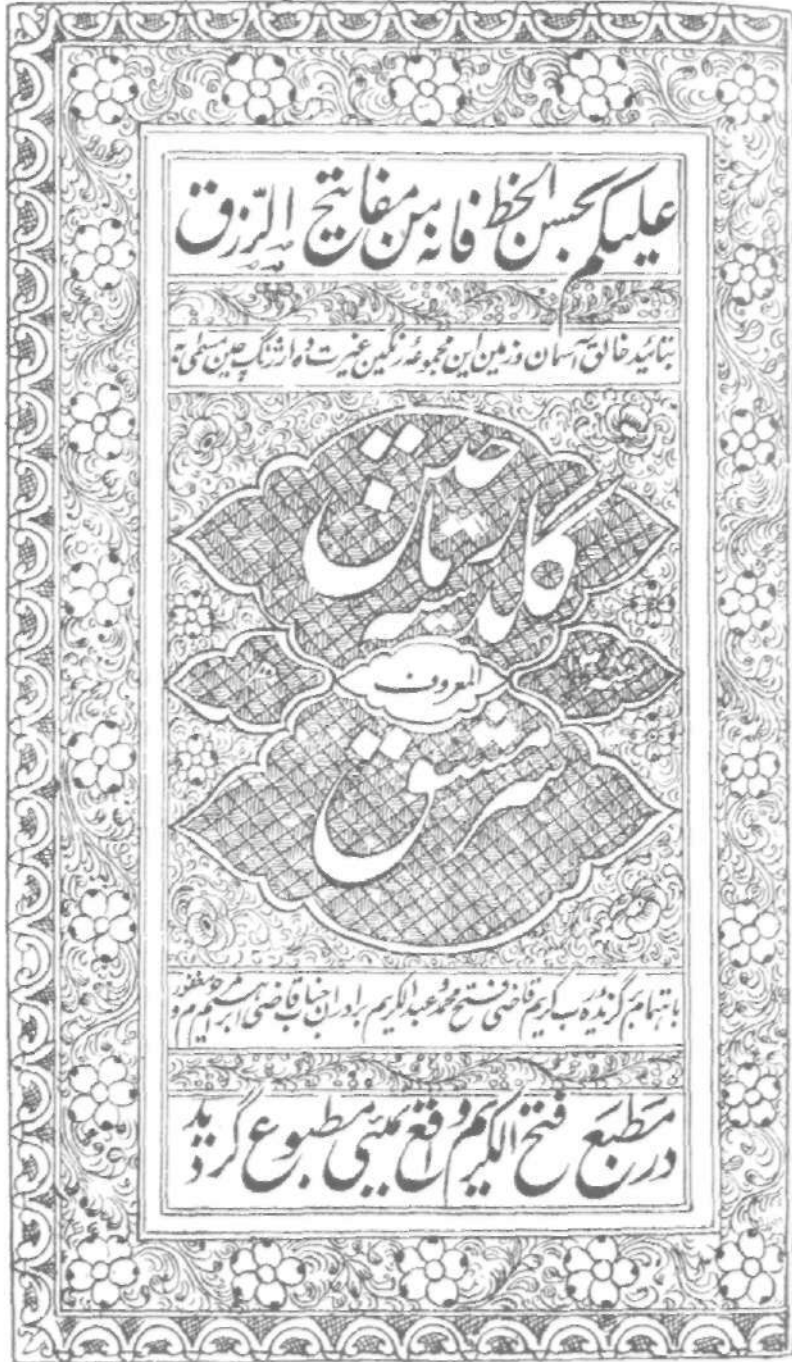 علیکم بحسن الخط فانه من مفاتیح الرّزق
بتائید خالق آسمان و زمین این مجموعهٔ رنگین غیرت ده ارژنگ چین مسمی به
گلدسته ریاحین
المعروف
سرمشق
باهتمام برگزیده رب کریم قاضی فتح محمد و عبدالکریم برادران جناب قاضی ابراهیم مرحوم و مغفور
در مَطبَع فتح الکریم واقع بمبئی مطبوع گردید